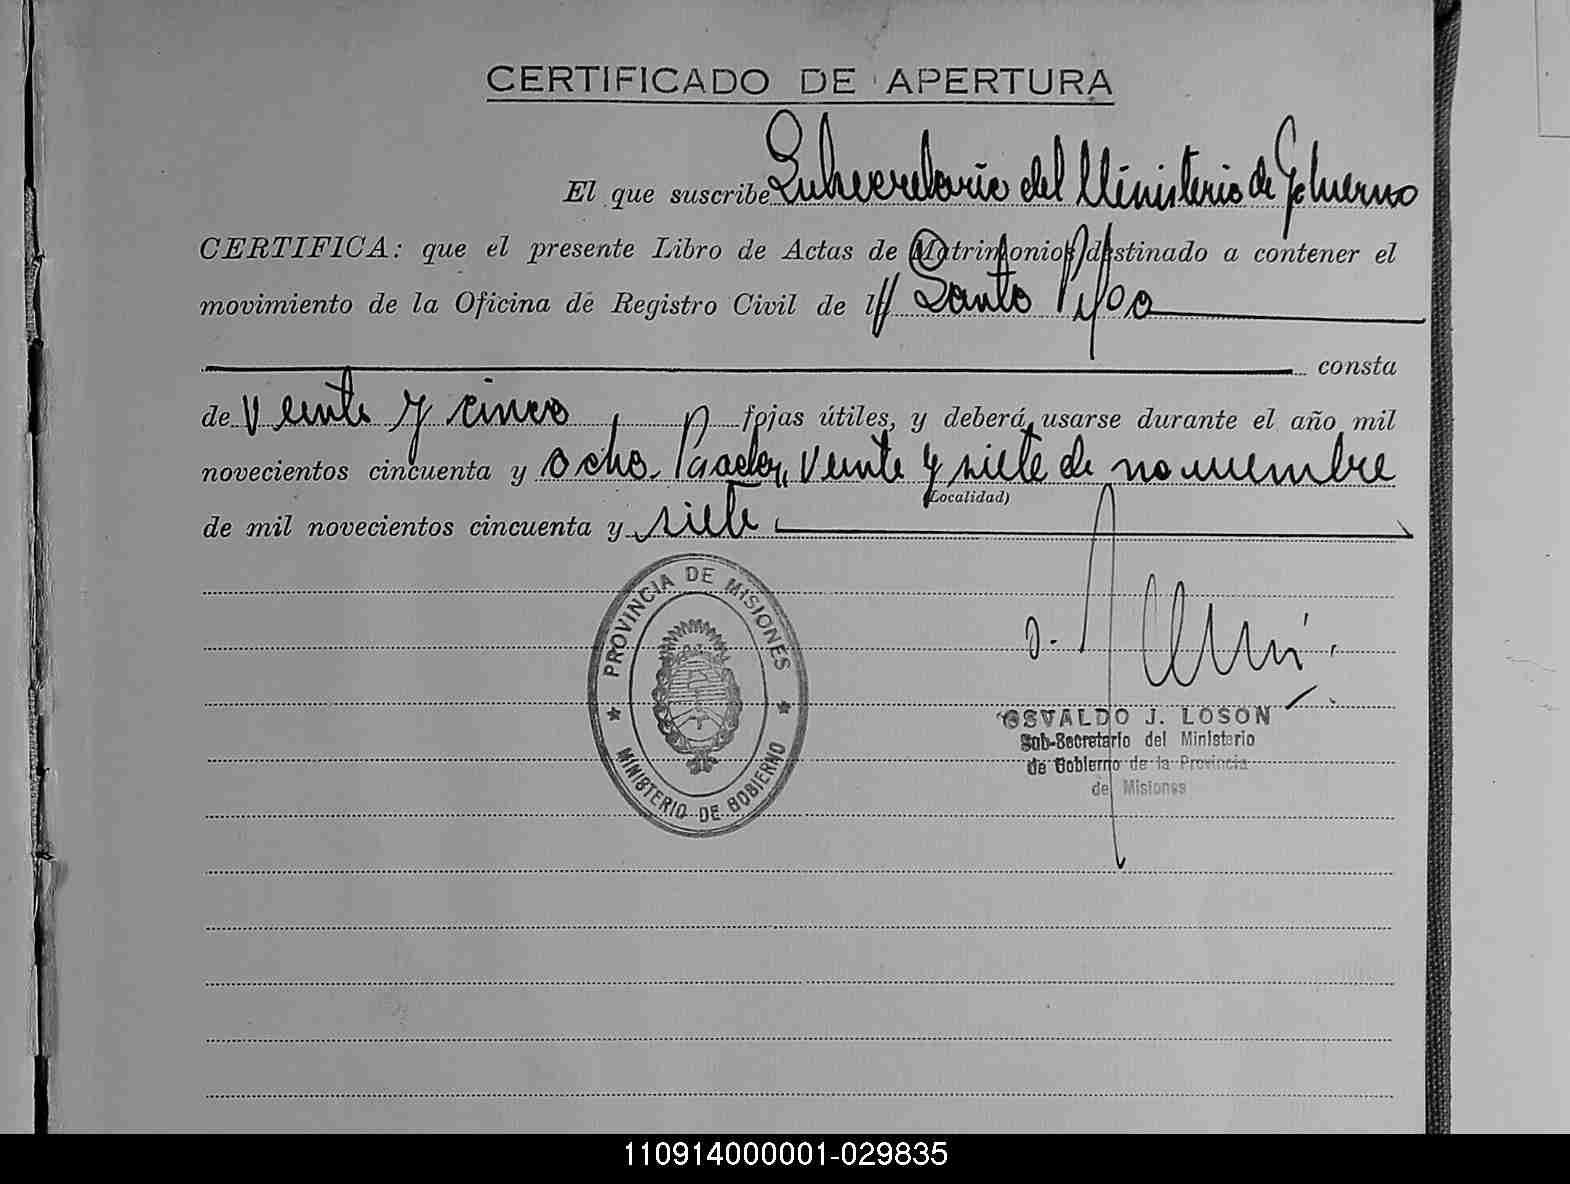 CERTIFICADO DE APERTURA
El que suscribe Subsecretario del Ministerio de Gobierno
CERTIFICA: que el presente Libro de Actas de Matrimonios destinado a contener el
movimiento de la Oficina de Registro Civil de Santo Pipo
consta
de Veinte y cinco fojas útiles, y deberá usarse durante el año mil
novecientos cincuenta y ocho. Posadas, veinte y siete de noviembre
(Localidad)
de mil novecientos cincuenta y siete
PROVINCIA DE MISIONES
MINISTERIO DE GOBIERNO
OSVALDO J. LOSON
Sub-Secretario del Ministerio
de Gobierno de la Provincia
de Misiones
110914000001-029835